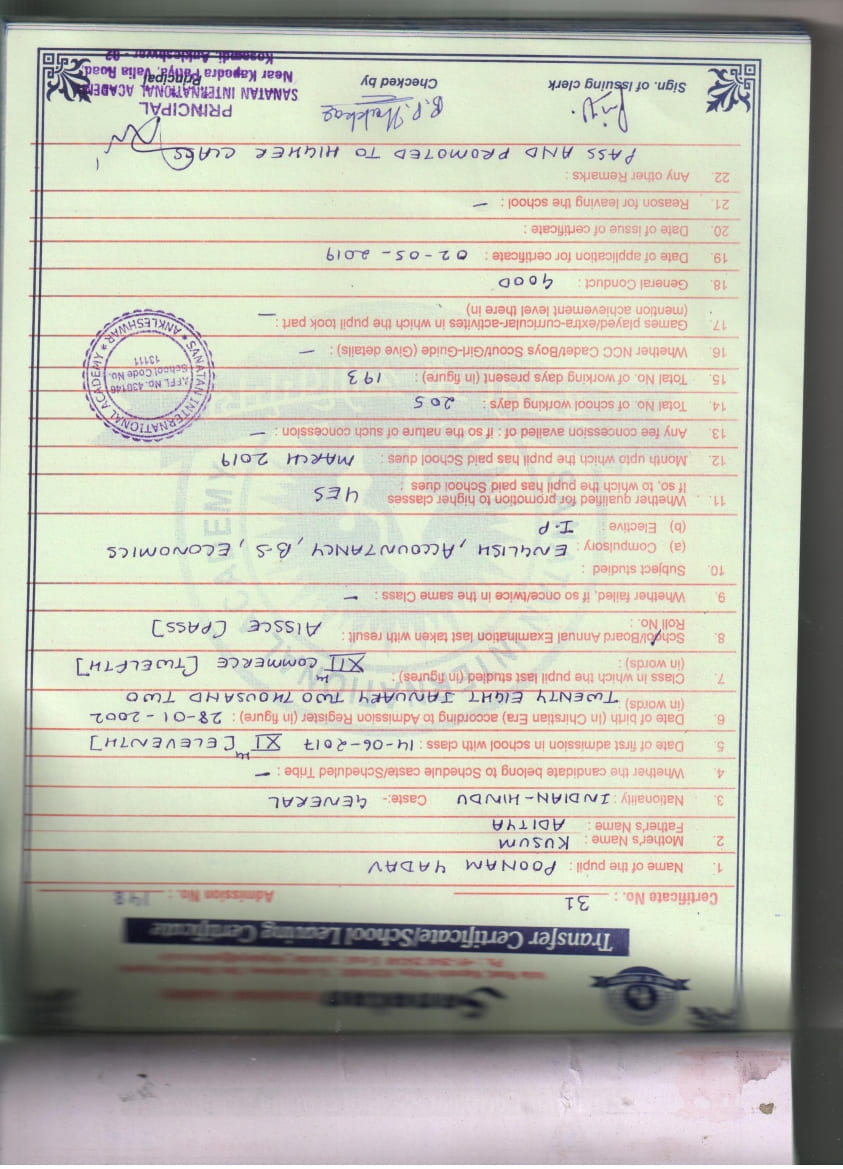 Sanatan
Transfer Certificate/School Leaving Certificate
Certificate No. : 31 Admission No. : 148
1. Name of the pupil : POONAM YADAV
2. Mother's Name : KUSUM
Father's Name : ADITYA
3. Nationality : INDIAN-HINDU Caste:- GENERAL
4. Whether the candidate belong to Schedule caste/Scheduled Tribe : -
5. Date of first admission in school with class : 14-06-2017 XI th [ELEVENTH]
6. Date of birth (in Chirstian Era) according to Admission Register (in figure) : 28-01-2002
(in words) : TWENTY EIGHT JANUARY TWO THOUSAND TWO
7. Class in which the pupil last studied (in figures) : XII th COMMERCE [TWELFTH]
(in words) :
8. School/Board Annual Examination last taken with result : AISSCE [PASS]
Roll No. :
9. Whether failed, if so once/twice in the same Class : -
10. Subject studied :
(a) Compulsory : ENGLISH, ACCOUNTANCY, B-S, ECONOMICS
(b) Elective : I-P
11. Whether qualified for promotion to higher classes YES
If so, to which the pupil has paid School dues :
12. Month upto which the pupil has paid School dues : MARCH 2019
13. Any fee concession availed of : if so the nature of such concession : -
14. Total No. of school working days : 205
15. Total No. of working days present (in figure) : 193
16. Whether NCC Cadet/Boys Scout/Girl-Guide (Give details) : -
17. Games played/extra-curricular-activites in which the pupil took part : -
(mention achievement level there in)
18. General Conduct : GOOD
19. Date of application for certificate : 02-05-2019
20. Date of issue of certificate :
21. Reason for leaving the school : -
22. Any other Remarks :
PASS AND PROMOTED TO HIGHER CLASS
Sign. of Issuing clerk Checked by Principal
PRINCIPAL
SANATAN INTERNATIONAL ACADEMY
Near Kapodra Patiya, Valia Road,
Kosamdi, Ankleshwar - 02
SANATAN INTERNATIONAL ACADEMY * ANKLESHWAR *
AFFL No. 430146
School Code No.
13111
SANATAN INTERNATIONAL ACADEMY